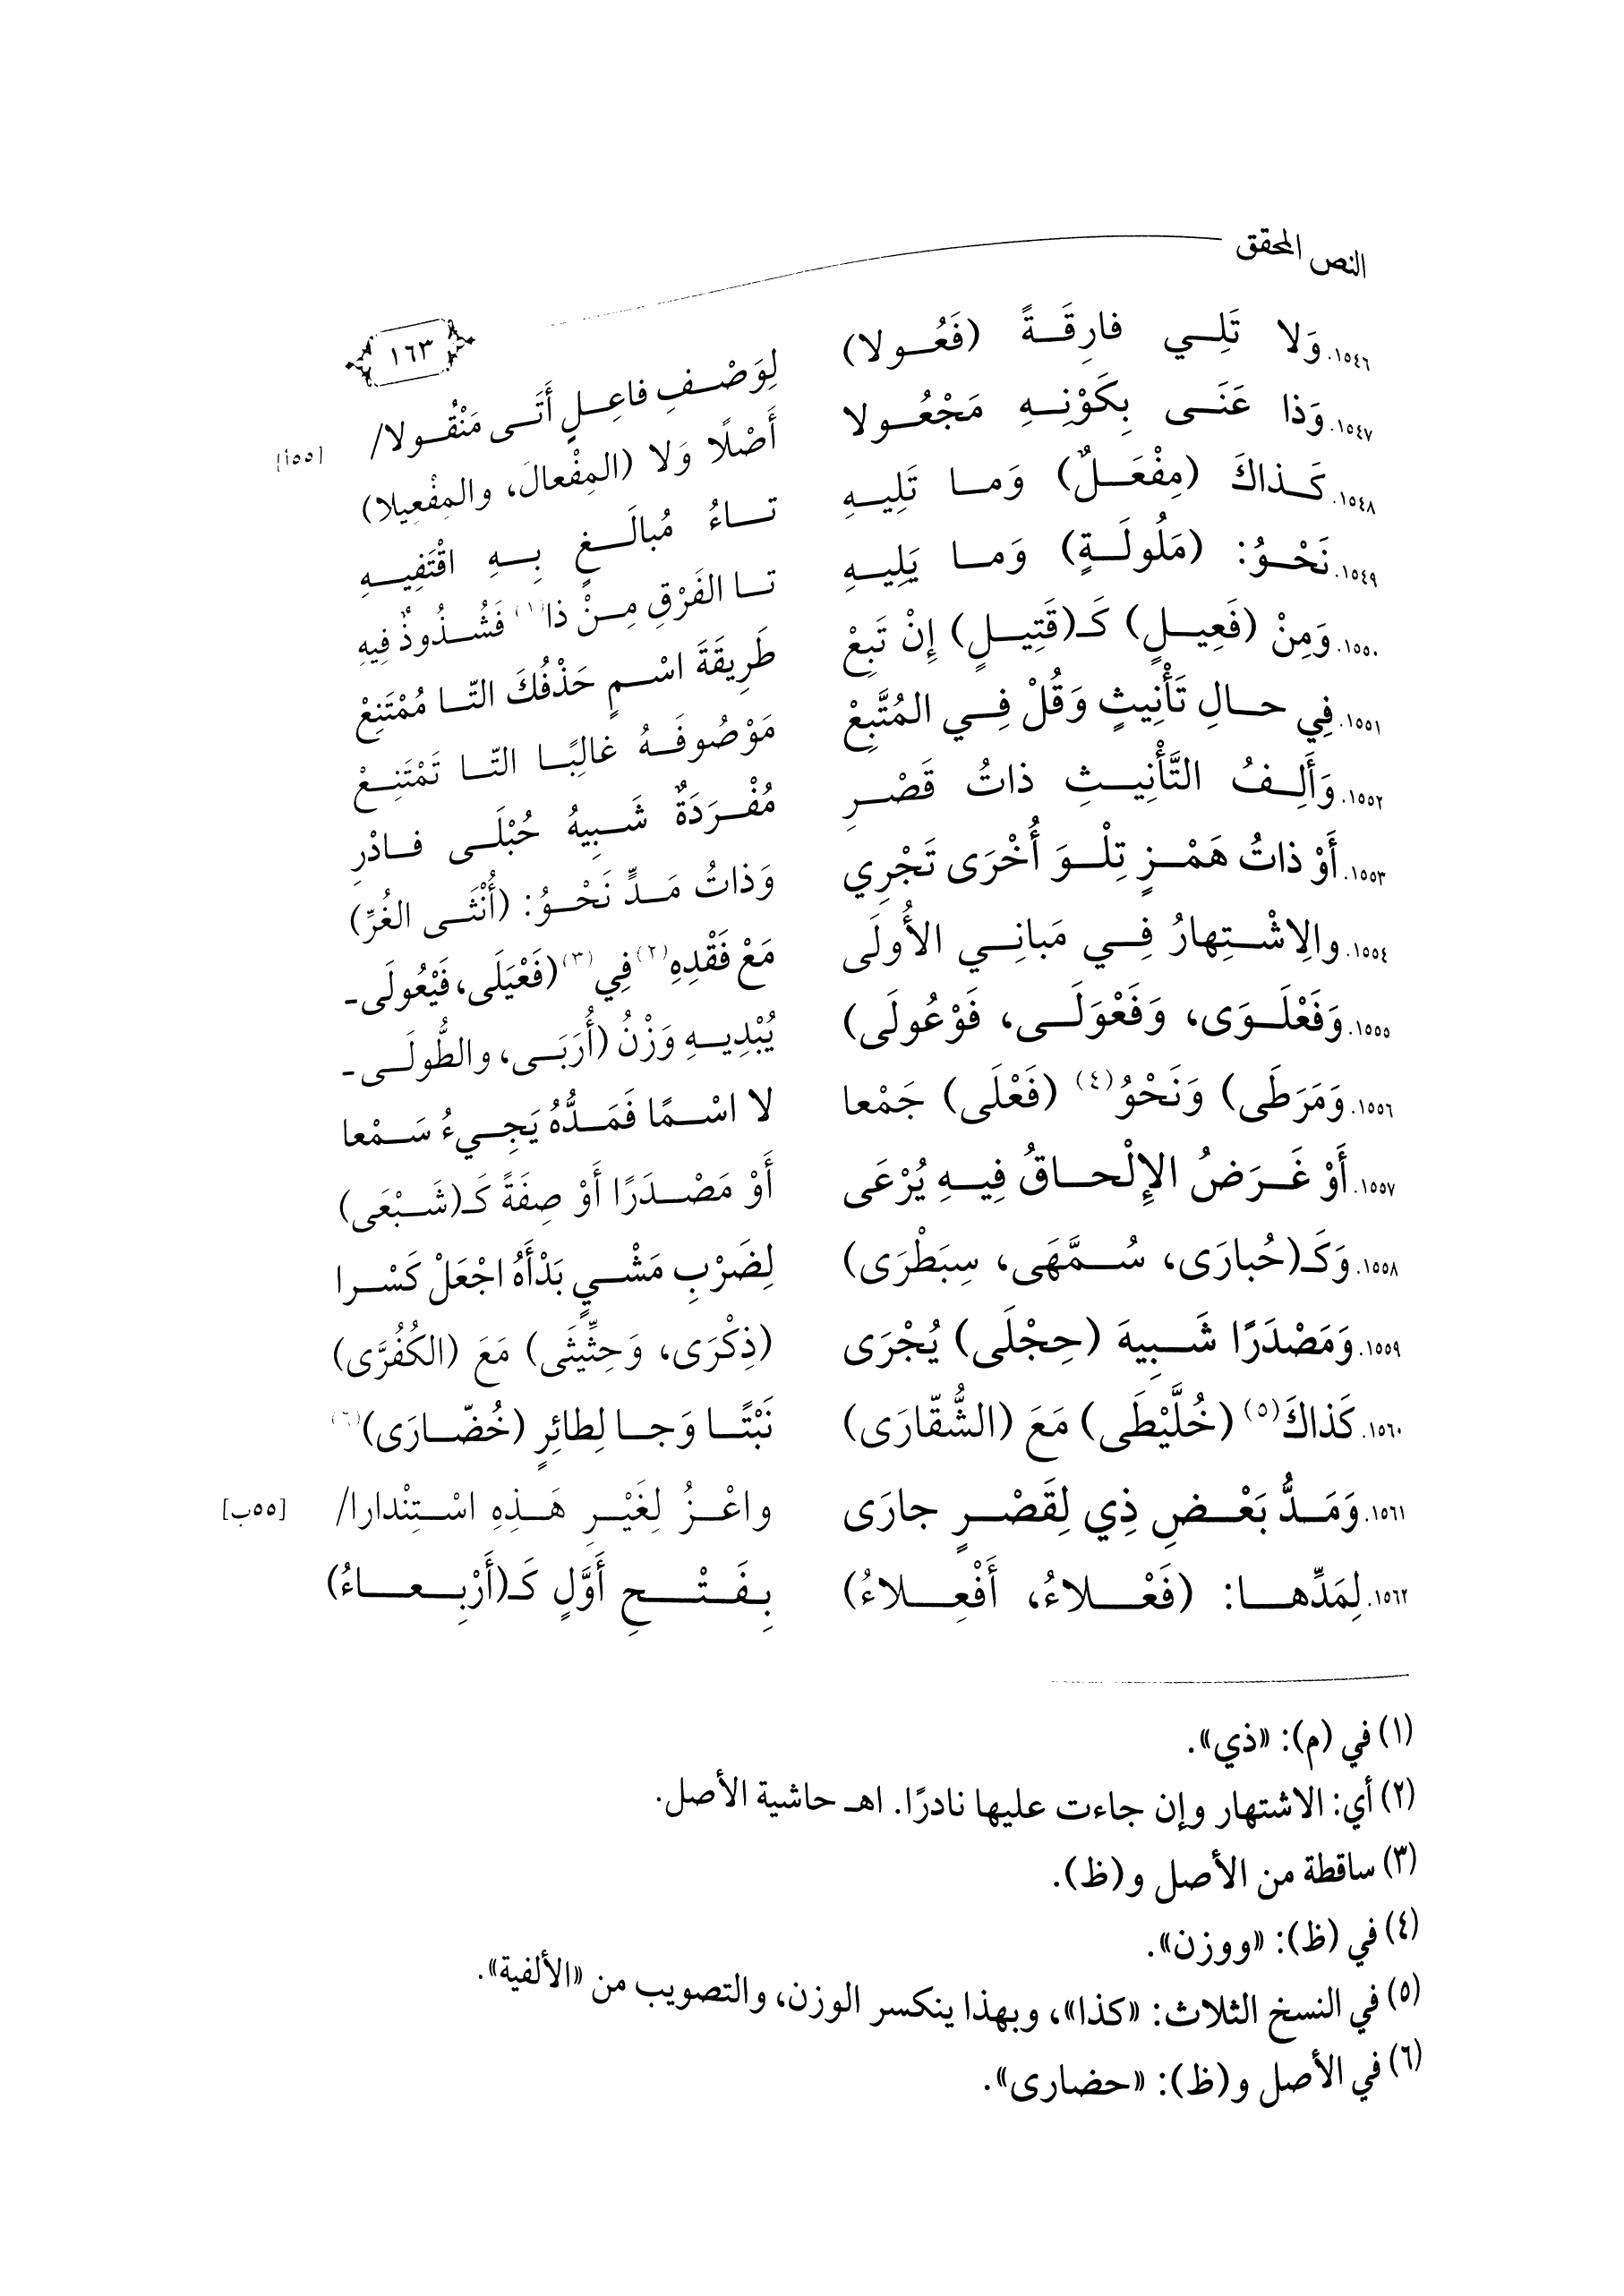 النص المحقق
١٦٣
١٥٤٦. وَلا تَلِي فارِقَةً (فَعُولا) لِوَصْفِ فاعِلٍ أَتَى مَنْقُولا/ [٥٥أ]
١٥٤٧. وَذا عَنَى بِكَوْنِهِ مَجْعُولا أَصْلًا وَلا (المِفْعالَ، والمِفْعِيلا)
١٥٤٨. كَذاكَ (مِفْعَلٌ) وَما تَلِيهِ تاءُ مُبالَغٍ بِهِ اقْتَفِيهِ
١٥٤٩. نَحْوُ: (مَلُولَةٍ) وَما يَلِيهِ تا الفَرْقِ مِنْ ذا(١) فَشُذُوذٌ فِيهِ
١٥٥٠. وَمِنْ (فَعِيلٍ) كَـ(قَتِيلٍ) إِنْ تَبِعْ طَرِيقَةَ اسْمٍ حَذْفُكَ التّا مُمْتَنِعْ
١٥٥١. فِي حالِ تَأْنِيثٍ وَقُلْ فِي المُتَّبِعْ مَوْصُوفَهُ غالِبًا التّا تَمْتَنِعْ
١٥٥٢. وَأَلِفُ التَّأْنِيثِ ذاتُ قَصْرِ مُفْرَدَةٌ شَبِيهُ حُبْلَى فادْرِ
١٥٥٣. أَوْ ذاتُ هَمْزٍ تِلْوَ أُخْرَى تَجْرِي وَذاتُ مَدٍّ نَحْوُ: (أُنْثَى الغُرِّ)
١٥٥٤. والِاشْتِهارُ فِي مَبانِي الأُولَى مَعْ فَقْدِهِ(٢) فِي(٣) (فَعْيَلَى، فَيْعُولَى-
١٥٥٥. وَفَعْلَوَى، وَفَعْوَلَى، فَوْعُولَى) يُبْدِيهِ وَزْنُ (أُرَبَى، والطُّولَى-
١٥٥٦. وَمَرَطَى) وَنَحْوُ(٤) (فَعْلَى) جَمْعا لا اسْمًا فَمَدُّهُ يَجِيءُ سَمْعا
١٥٥٧. أَوْ غَرَضُ الإِلْحاقُ فِيهِ يُرْعَى أَوْ مَصْدَرًا أَوْ صِفَةً كَـ(شَبْعَى)
١٥٥٨. وَكَـ(حُبارَى، سُمَّهَى، سِبَطْرَى) لِضَرْبِ مَشْيٍ بَدْأَهُ اجْعَلْ كَسْرا
١٥٥٩. وَمَصْدَرًا شَبِيهَ (حِجْلَى) يُجْرَى (ذِكْرَى، وَحِثِّيثَى) مَعَ (الكُفُرَّى)
١٥٦٠. كَذاكَ(٥) (خُلَّيْطَى) مَعَ (الشُّقّارَى) نَبْتًا وَجا لِطائِرٍ (خُضّارَى)(٦)
١٥٦١. وَمَدُّ بَعْضِ ذِي لِقَصْرٍ جارَى واعْزُ لِغَيْرِ هَذِهِ اسْتِنْدارا/ [٥٥ب]
١٥٦٢. لِمَدِّها: (فَعْلاءُ، أَفْعِلاءُ) بِفَتْحِ أَوَّلٍ كَـ(أَرْبِعاءُ)
(١) في (م): «ذي».
(٢) أي: الاشتهار وإن جاءت عليها نادرًا. اهـ حاشية الأصل.
(٣) ساقطة من الأصل و(ظ).
(٤) في (ظ): «ووزن».
(٥) في النسخ الثلاث: «كذا»، وبهذا ينكسر الوزن، والتصويب من «الألفية».
(٦) في الأصل و(ظ): «حضارى».